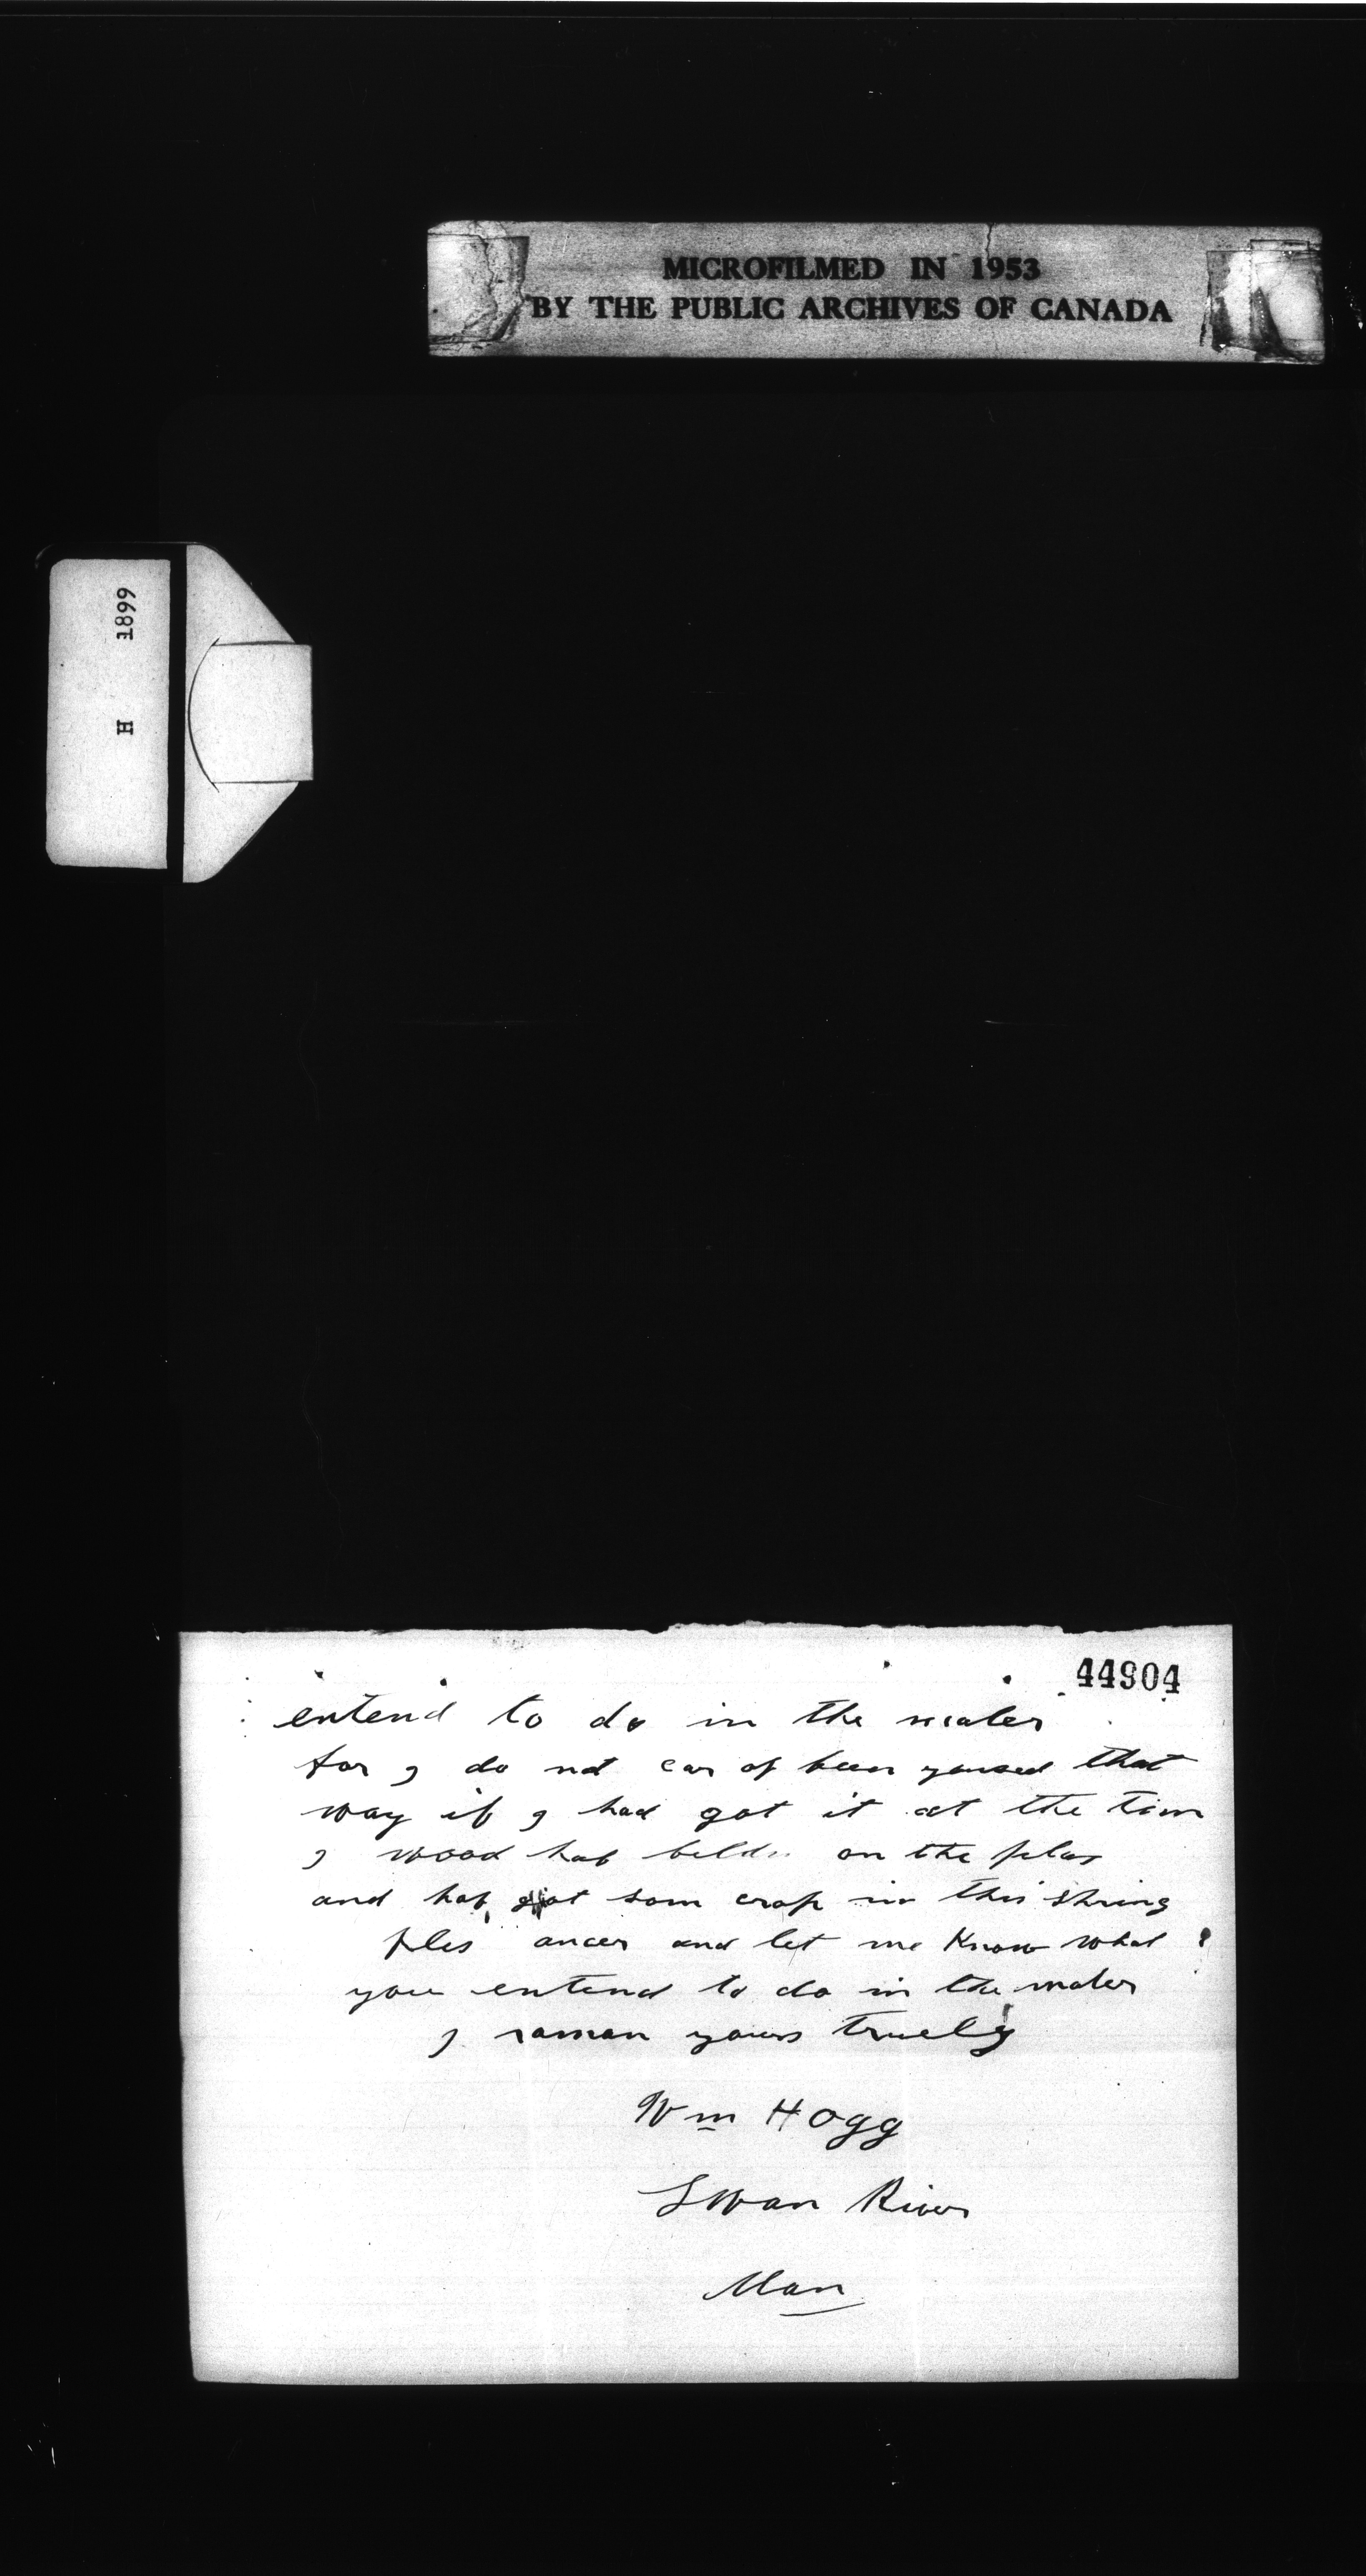 MICROFILMED IN 1953
BY THE PUBLIC ARCHIVES OF CANADA
H 1899
44904
entend to do in the mater
for I do not car of been yoused that
way if I had got it at the tim
I wood haf on the plas
and haf got som crop in this
ples ancer and let me Know what
you entend to do in the mater
I raman yours truely
Wm Hogg
Swan River
Man